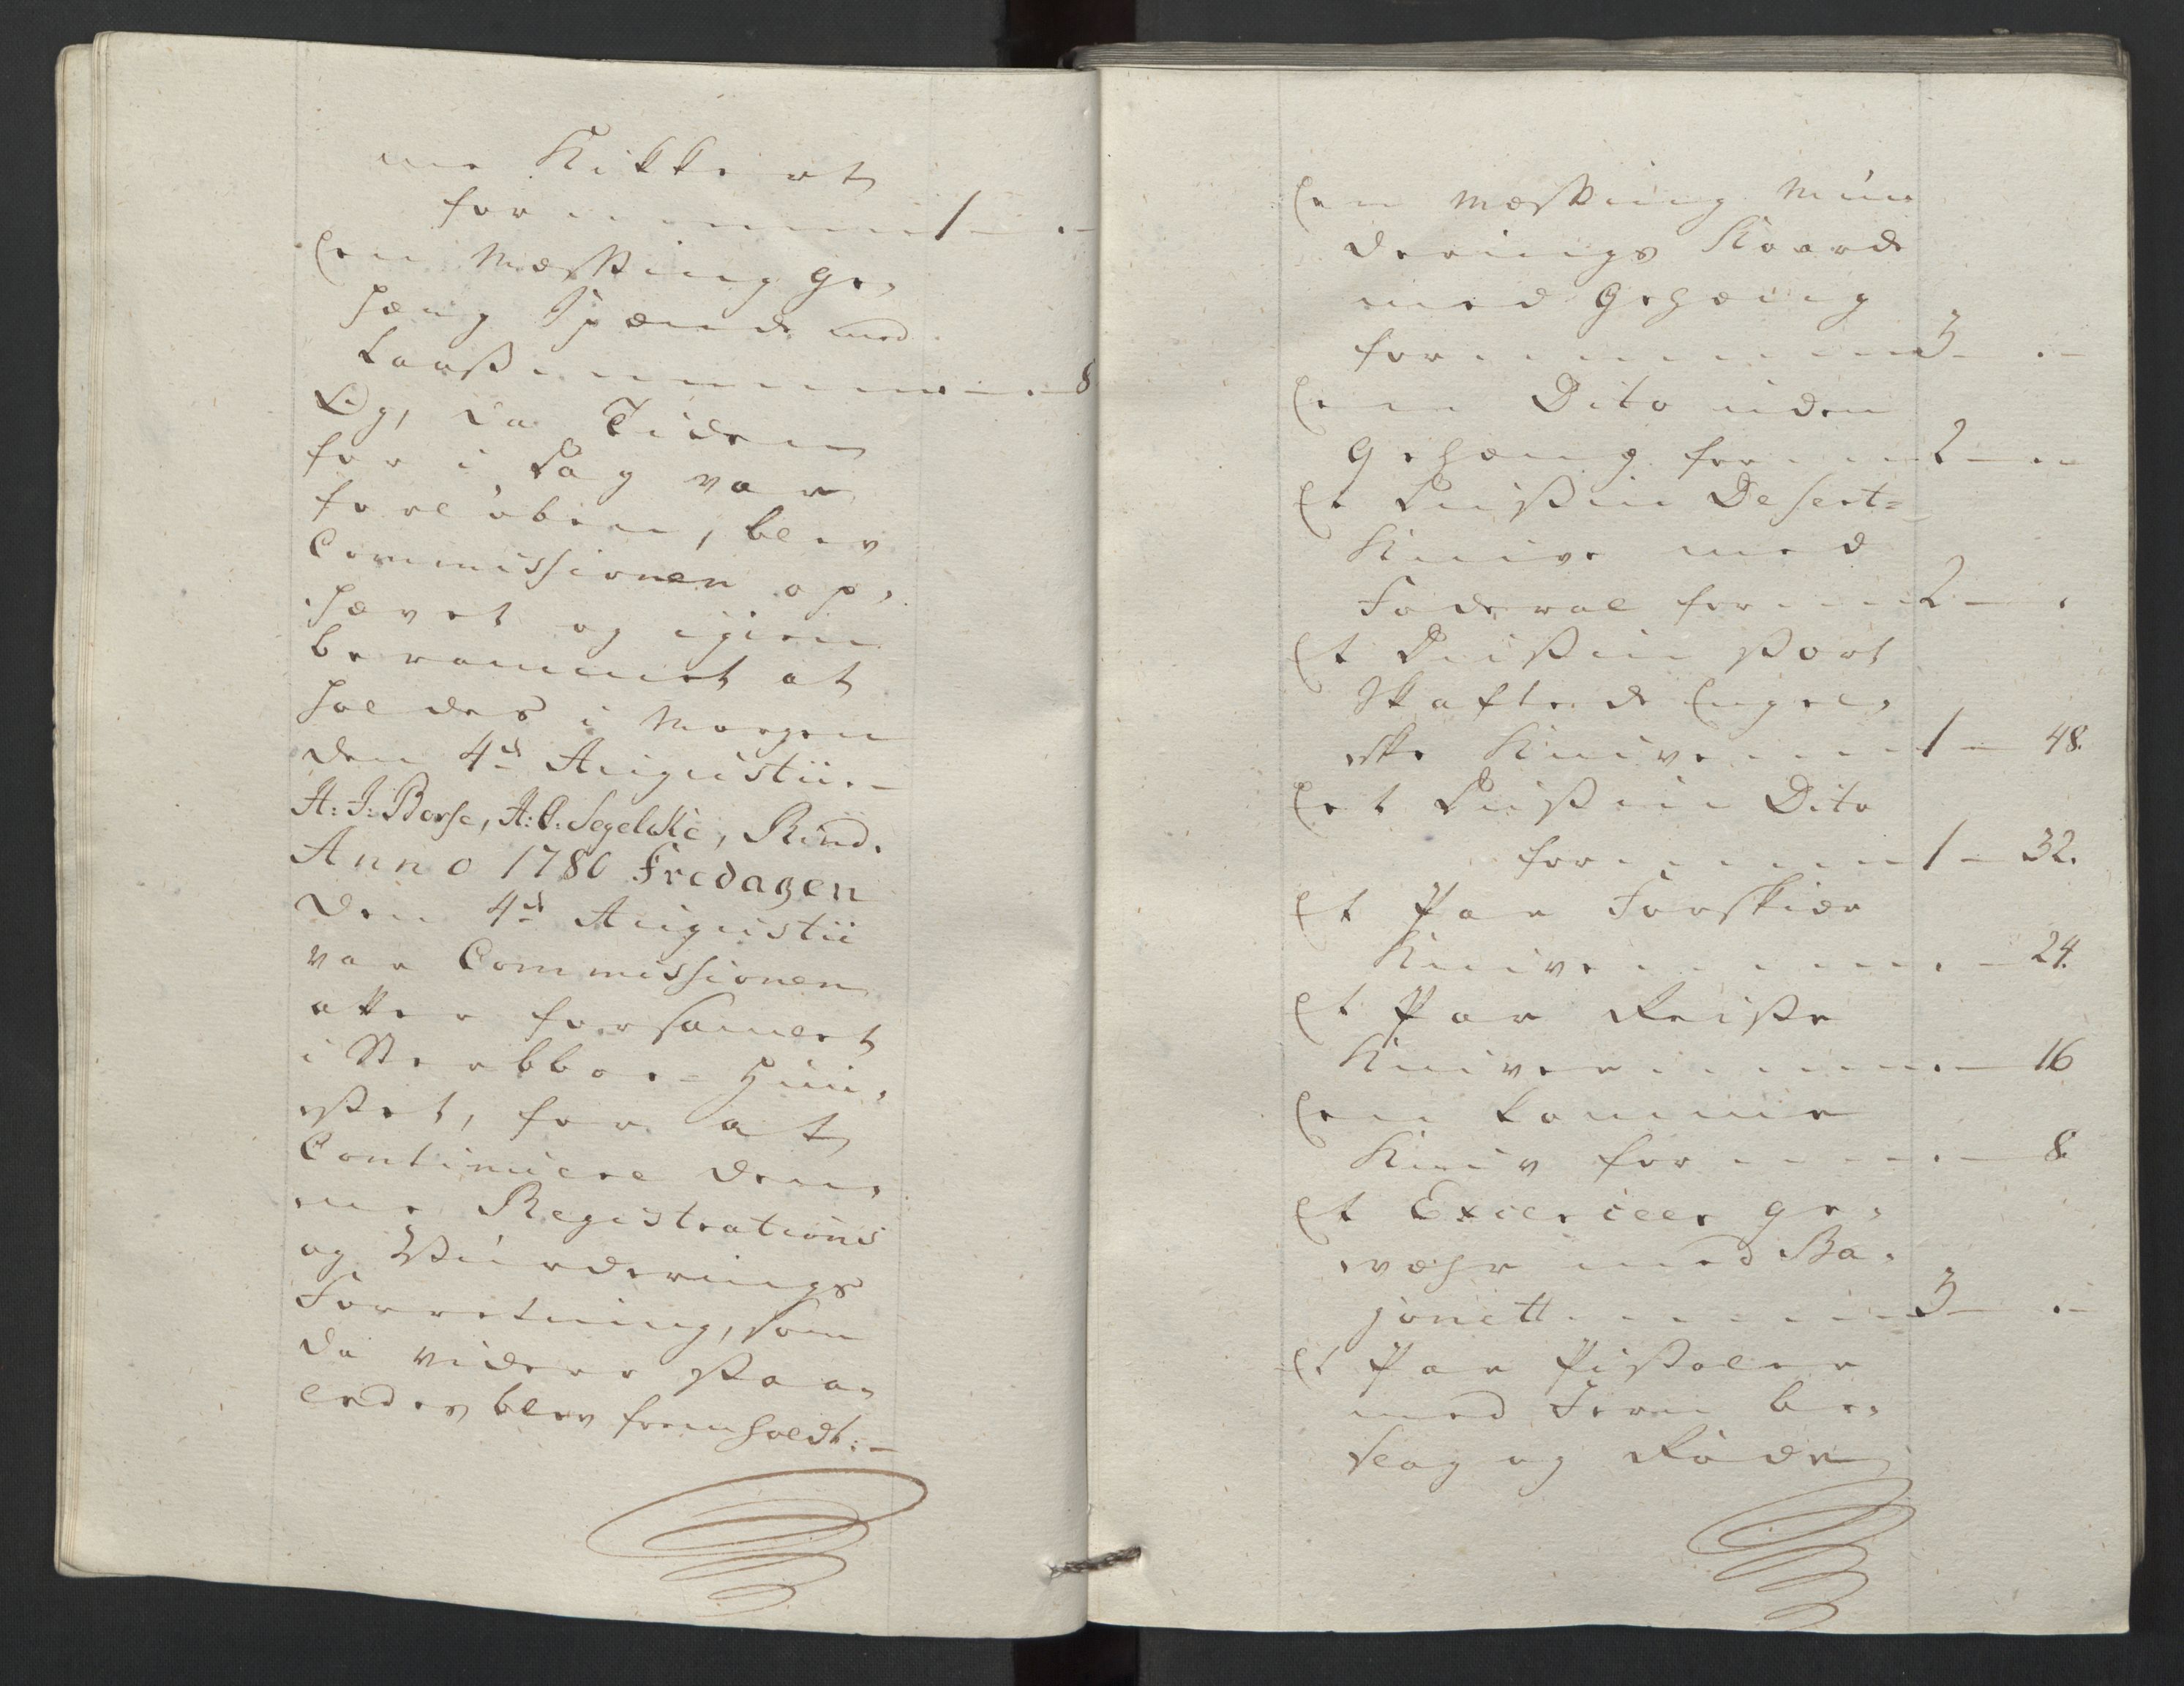 ne Kikkert
for - - - - - 1 - . -
Een Messing Ge,
hæng Spænde med
Laaß - - - - - . - 8
Og, da Tiden
for i Dag var
forløben, blev
Commissionen op,
hævet og igien
berammet at
holdes i Morgen
den 4de Augustii. -
A: J: Borse, A: O: Segelcke, Rind.
Anno 1780 Fredagen
den 4de Augustii
var Commissionen
atter forsamlet
i Sterbboe-Huu,
set, for at
Continuere den,
ne Registrations
og Vurderings
Forretning, som
da videre saa,
ledes blev fremholdt: -
Een Messing Mun
derings Kaarde
med Gehæng
for - - - - - 3 - . -
Een Dito uden
Gehæng for - - 2 - . -
Et Dusin Desert-
Knive med
Foderal for - - 2 - .
Et Dusin sort
Skaftede Engel,
ske Knive - - - 1 - 48.
Et Dusin Dito
for - - - - - 1 - 32.
Et Par Forskiær
Knive - - - - . - 24.
Et Par Reise
Kniver - - - - . - 16
Een Lomme
Kniv for - - - . - 8.
Et Exerceer Ge,
væhr med Ba,
jonett - - - - 3 - . -
Et Par Pistoler
med Jern be,
slag og Røde